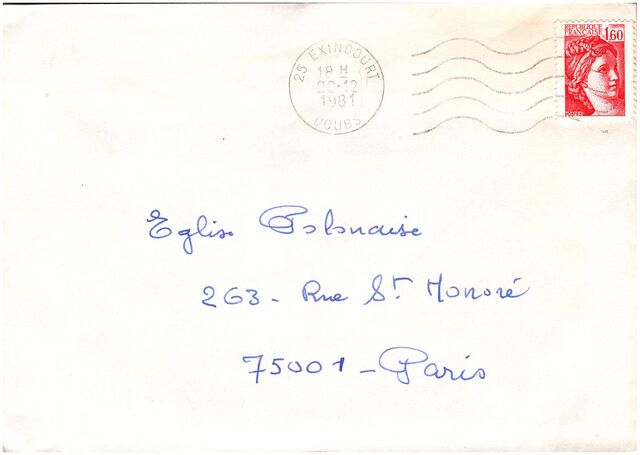 25 EXINCOURT
18 H
22-12
1981
DOUBS
REPUBLIQUE
FRANCAISE
1,60
Eglise Polonaise
263 - Rue St Honoré
75001 - Paris